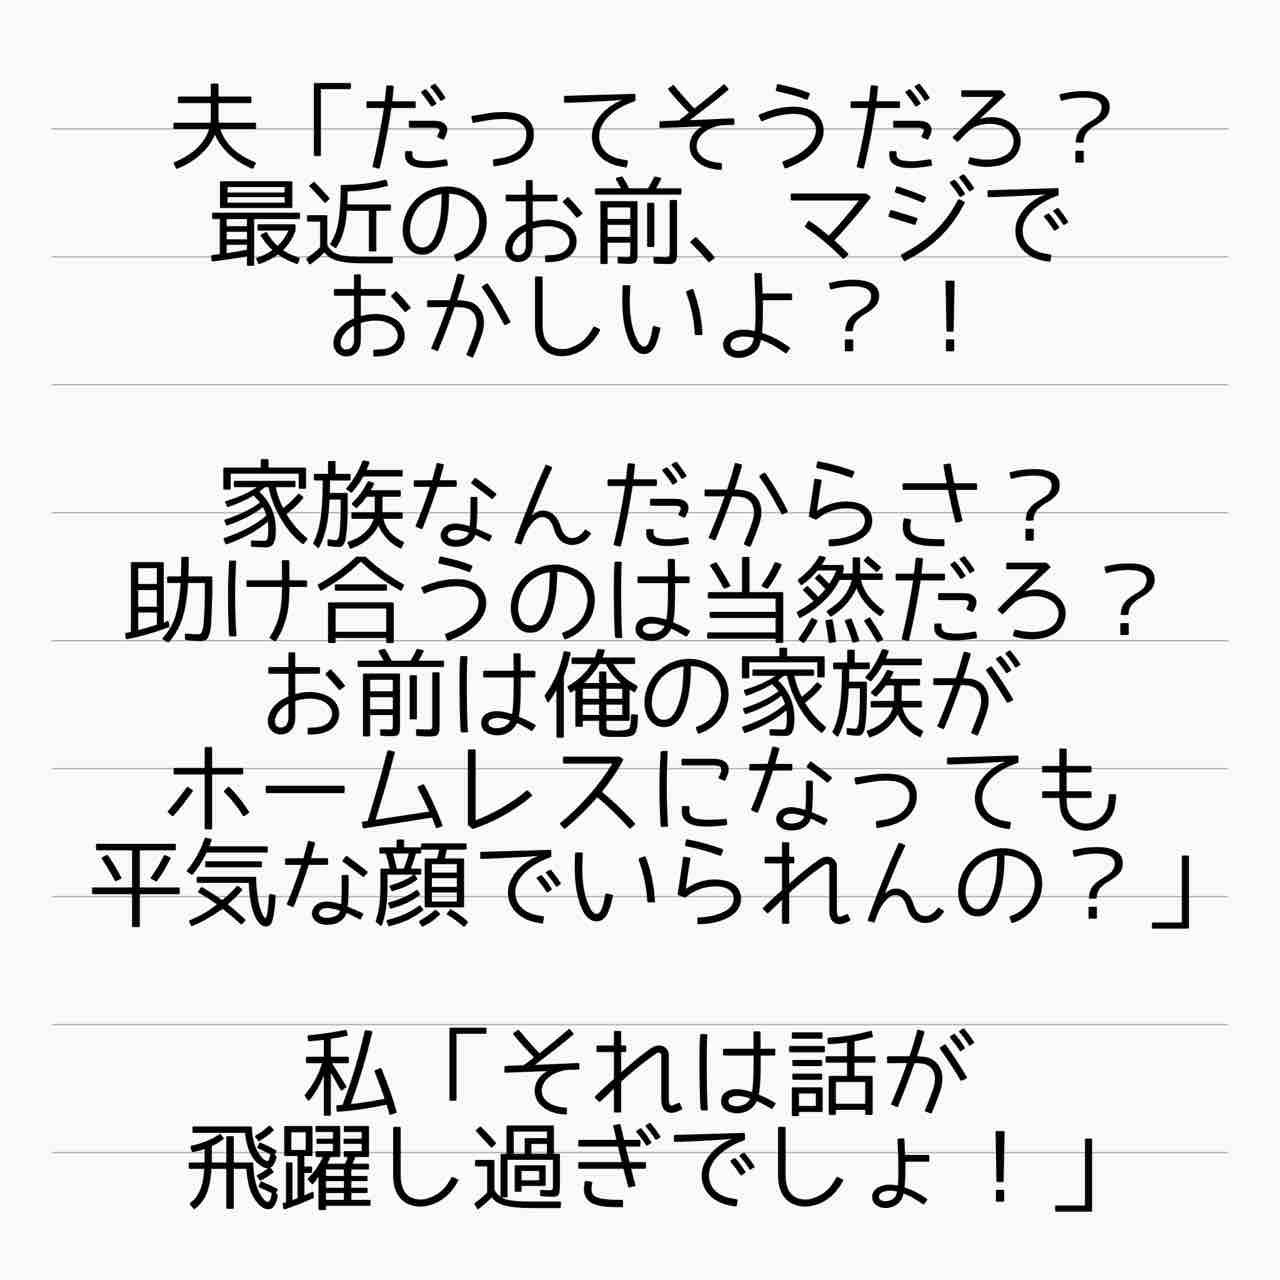 夫「だってそうだろ？
最近のお前、マジで
おかしいよ？！
家族なんだからさ？
助け合うのは当然だろ？
お前は俺の家族が
ホームレスになっても
平気な顔でいられんの？」
私「それは話が
飛躍し過ぎでしょ！」